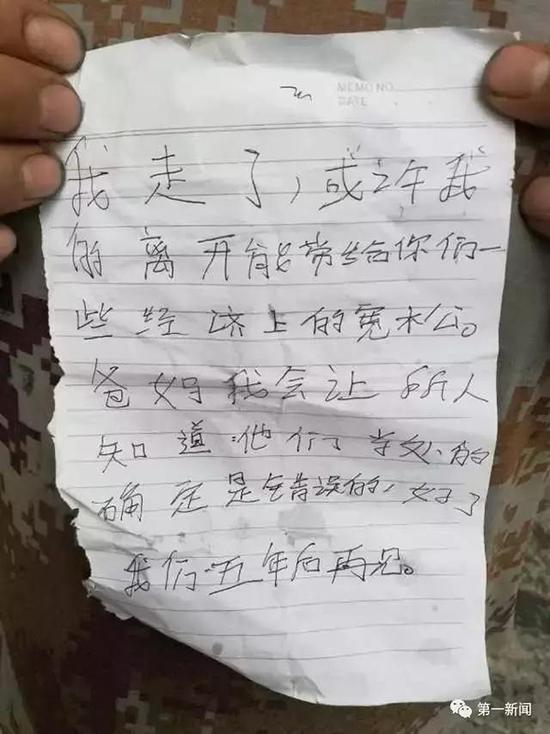 MEMO NO.
DATE
我走了，或许我
的离开能带给你们一
些经济上的宽松。
爸妈我会让所人
知道他们学校的
确定是错误的，好了
我们五年后再见。
第一新闻